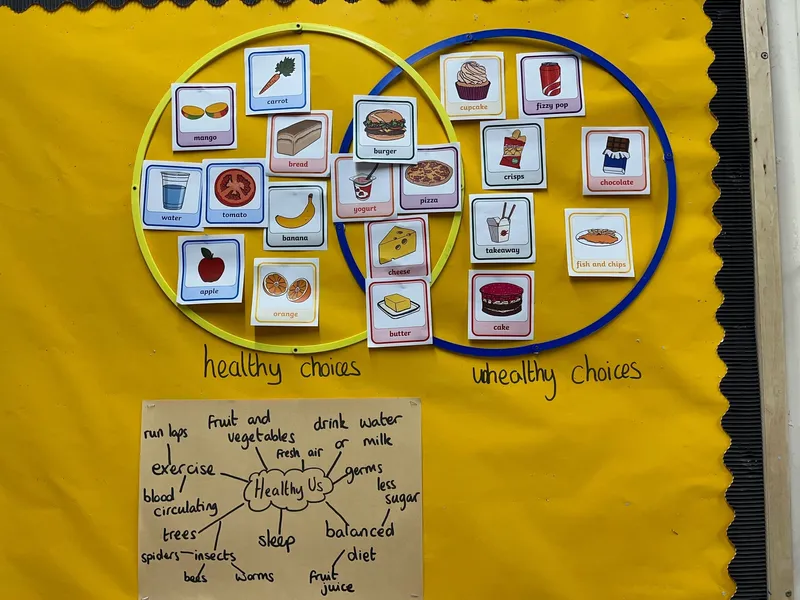 carrot
mango
bread
water
tomato
banana
apple
orange
burger
yogurt
pizza
cheese
butter
cupcake
fizzy pop
crisps
chocolate
takeaway
fish and chips
cake
healthy choices
unhealthy choices
run laps
exercise
blood
circulating
Fruit and
vegetables
fresh air
drink water
or milk
germs
less
sugar
Healthy Us
trees
spiders
insects
bees
worms
sleep
balanced
diet
fruit
juice